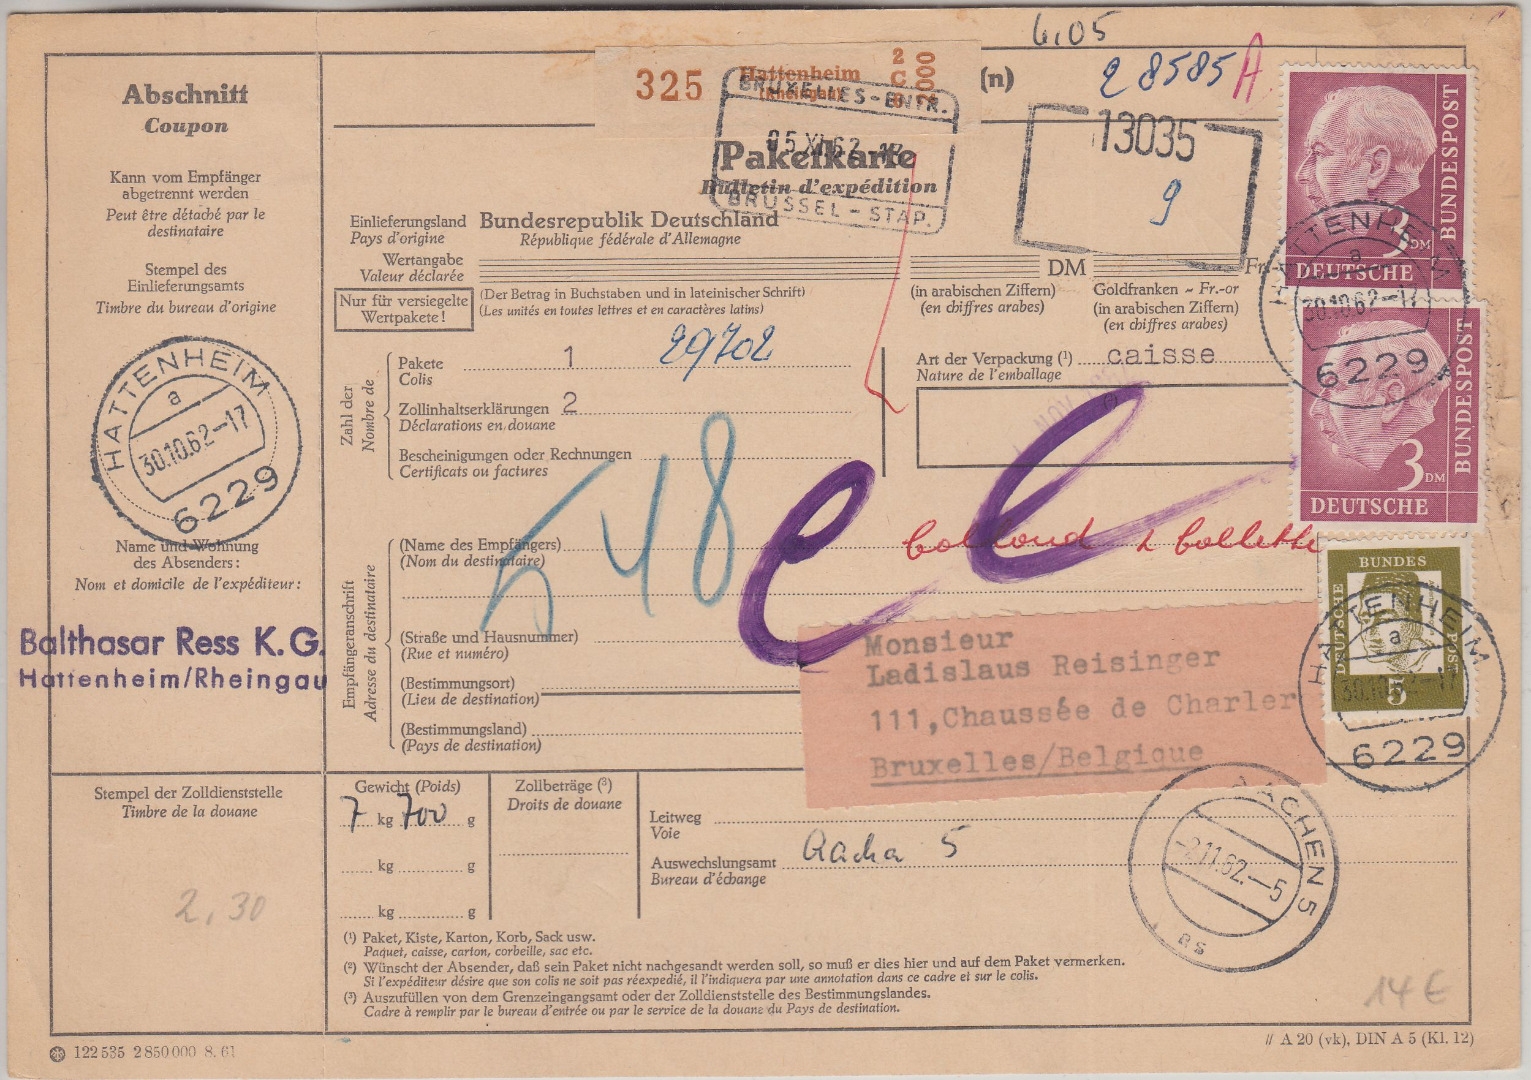 6,05
28585 A
325
Hattenheim
(Rheingau)
(n)
BRUXELLES-ENTR.
05 XI 62 17
BRUSSEL-STAP.
Paketkarte
Bulletin d'expédition
13035
9
Abschnitt
Coupon
Kann vom Empfänger
abgetrennt werden
Peut être détaché par le
destinataire
Stempel des
Einlieferungsamts
Timbre du bureau d'origine
HATTENHEIM
a
30.10.62-17
6229
Name und Wohnung
des Absenders:
Nom et domicile de l'expéditeur:
Balthasar Ress K.G.
Hattenheim/Rheingau
Stempel der Zolldienststelle
Timbre de la douane
2,30
Einlieferungsland Bundesrepublik Deutschland
Pays d'origine République fédérale d'Allemagne
Wertangabe
Valeur déclarée
DM
Fr.
Nur für versiegelte
Wertpakete!
(Der Betrag in Buchstaben und in lateinischer Schrift)
(Les unités en toutes lettres et en caractères latins)
(in arabischen Ziffern)
(en chiffres arabes)
Goldfranken ~ Fr.-or
(in arabischen Ziffern)
(en chiffres arabes)
Zahl der
Nombre de
Pakete 1
Colis
29702
Zollinhaltserklärungen 2
Déclarations en douane
Bescheinigungen oder Rechnungen
Certificats ou factures
Art der Verpackung (¹) caisse
Nature de l'emballage
(²)
548
Empfängeranschrift
Adresse du destinataire
(Name des Empfängers)
(Nom du destinataire)
(Straße und Hausnummer)
(Rue et numéro)
(Bestimmungsort)
(Lieu de destination)
(Bestimmungsland)
(Pays de destination)
Monsieur
Ladislaus Reisinger
111,Chaussée de Charler
Bruxelles/Belgique
Gewicht (Poids)
7 kg 700 g
kg g
kg g
Zollbeträge (³)
Droits de douane
Leitweg
Voie
Auswechslungsamt
Bureau d'échange
5
AACHEN 5
-2.11.62.-5
as
(¹) Paket, Kiste, Karton, Korb, Sack usw.
Paquet, caisse, carton, corbeille, sac etc.
(²) Wünscht der Absender, daß sein Paket nicht nachgesandt werden soll, so muß er dies hier und auf dem Paket vermerken.
Si l'expéditeur désire que son colis ne soit pas réexpédié, il l'indiquera par une annotation dans ce cadre et sur le colis.
(³) Auszufüllen von dem Grenzeingangsamt oder der Zolldienststelle des Bestimmungslandes.
Cadre à remplir par le bureau d'entrée ou par le service de la douane du Pays de destination.
14 €
122 535 2 850 000 8. 61
// A 20 (vk), DIN A 5 (Kl. 12)
3 DM
DEUTSCHE
BUNDESPOST
HATTENHEIM
a
30.10.62-17
6229
3 DM
DEUTSCHE
BUNDESPOST
DEUTSCHE
BUNDES
POST
5
HATTENHEIM
a
30.10.62-17
6229